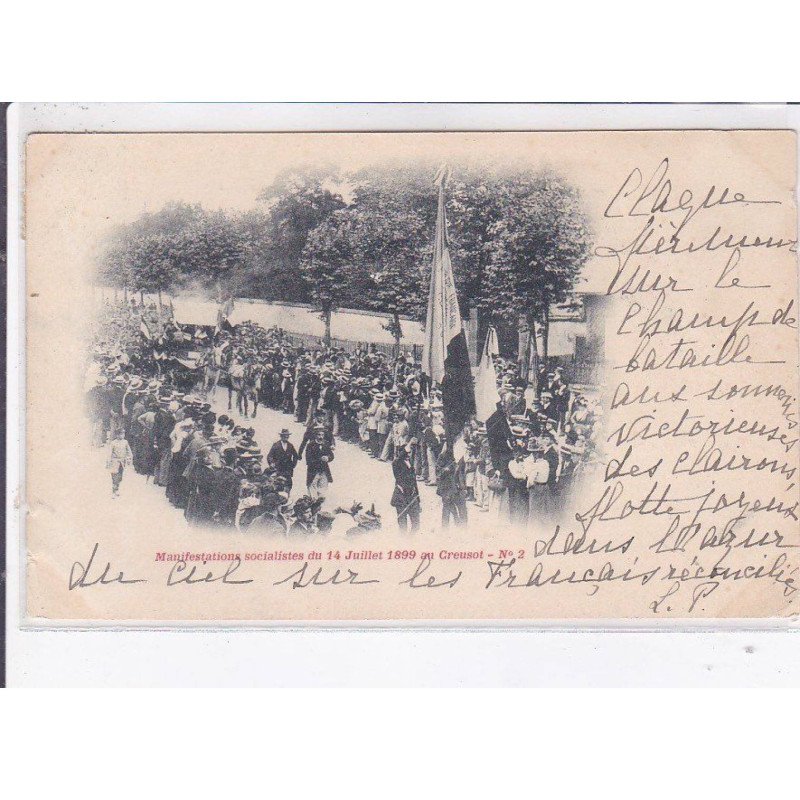 Claque
fièrement
sur le
Champ de
bataille
aux sonneries
victorieuses
des clairons,
flotte joyeux
Manifestations socialistes du 14 Juillet 1899 au Creusot - N° 2
dans l'azur
du ciel sur les Français réconciliés
L. P.